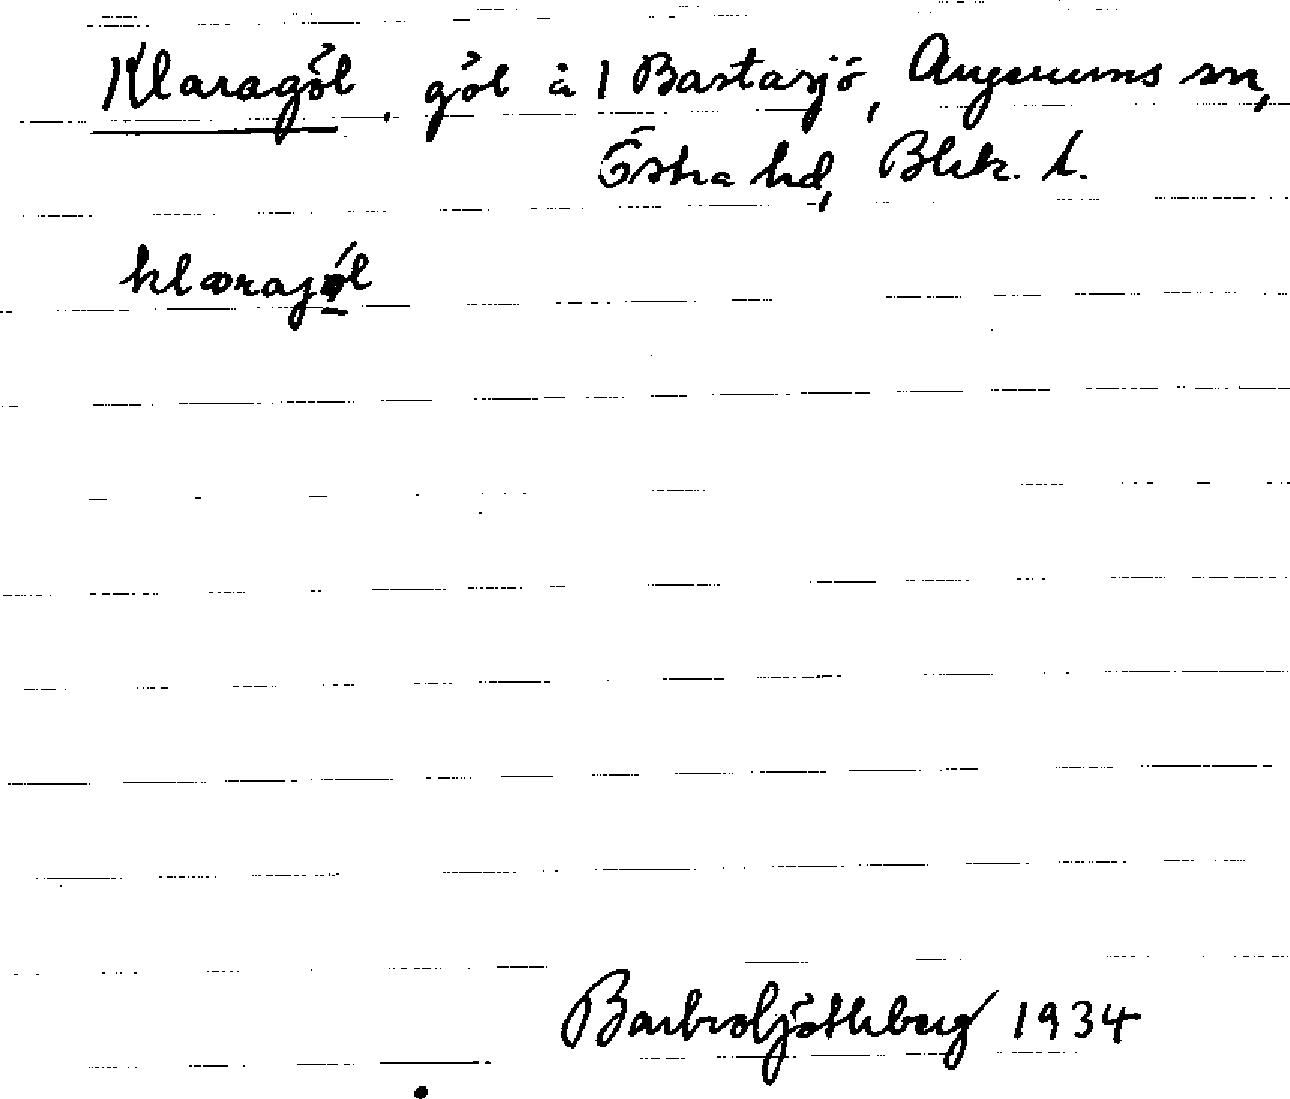 Klaragöl, göl å 1 Bastasjö, Augerums sn,
Östra hd, Blek. l.
klaragöl
1934